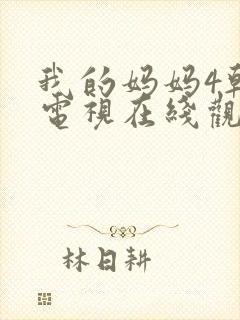 我的妈妈4韩
電視在綫觀
林日耕